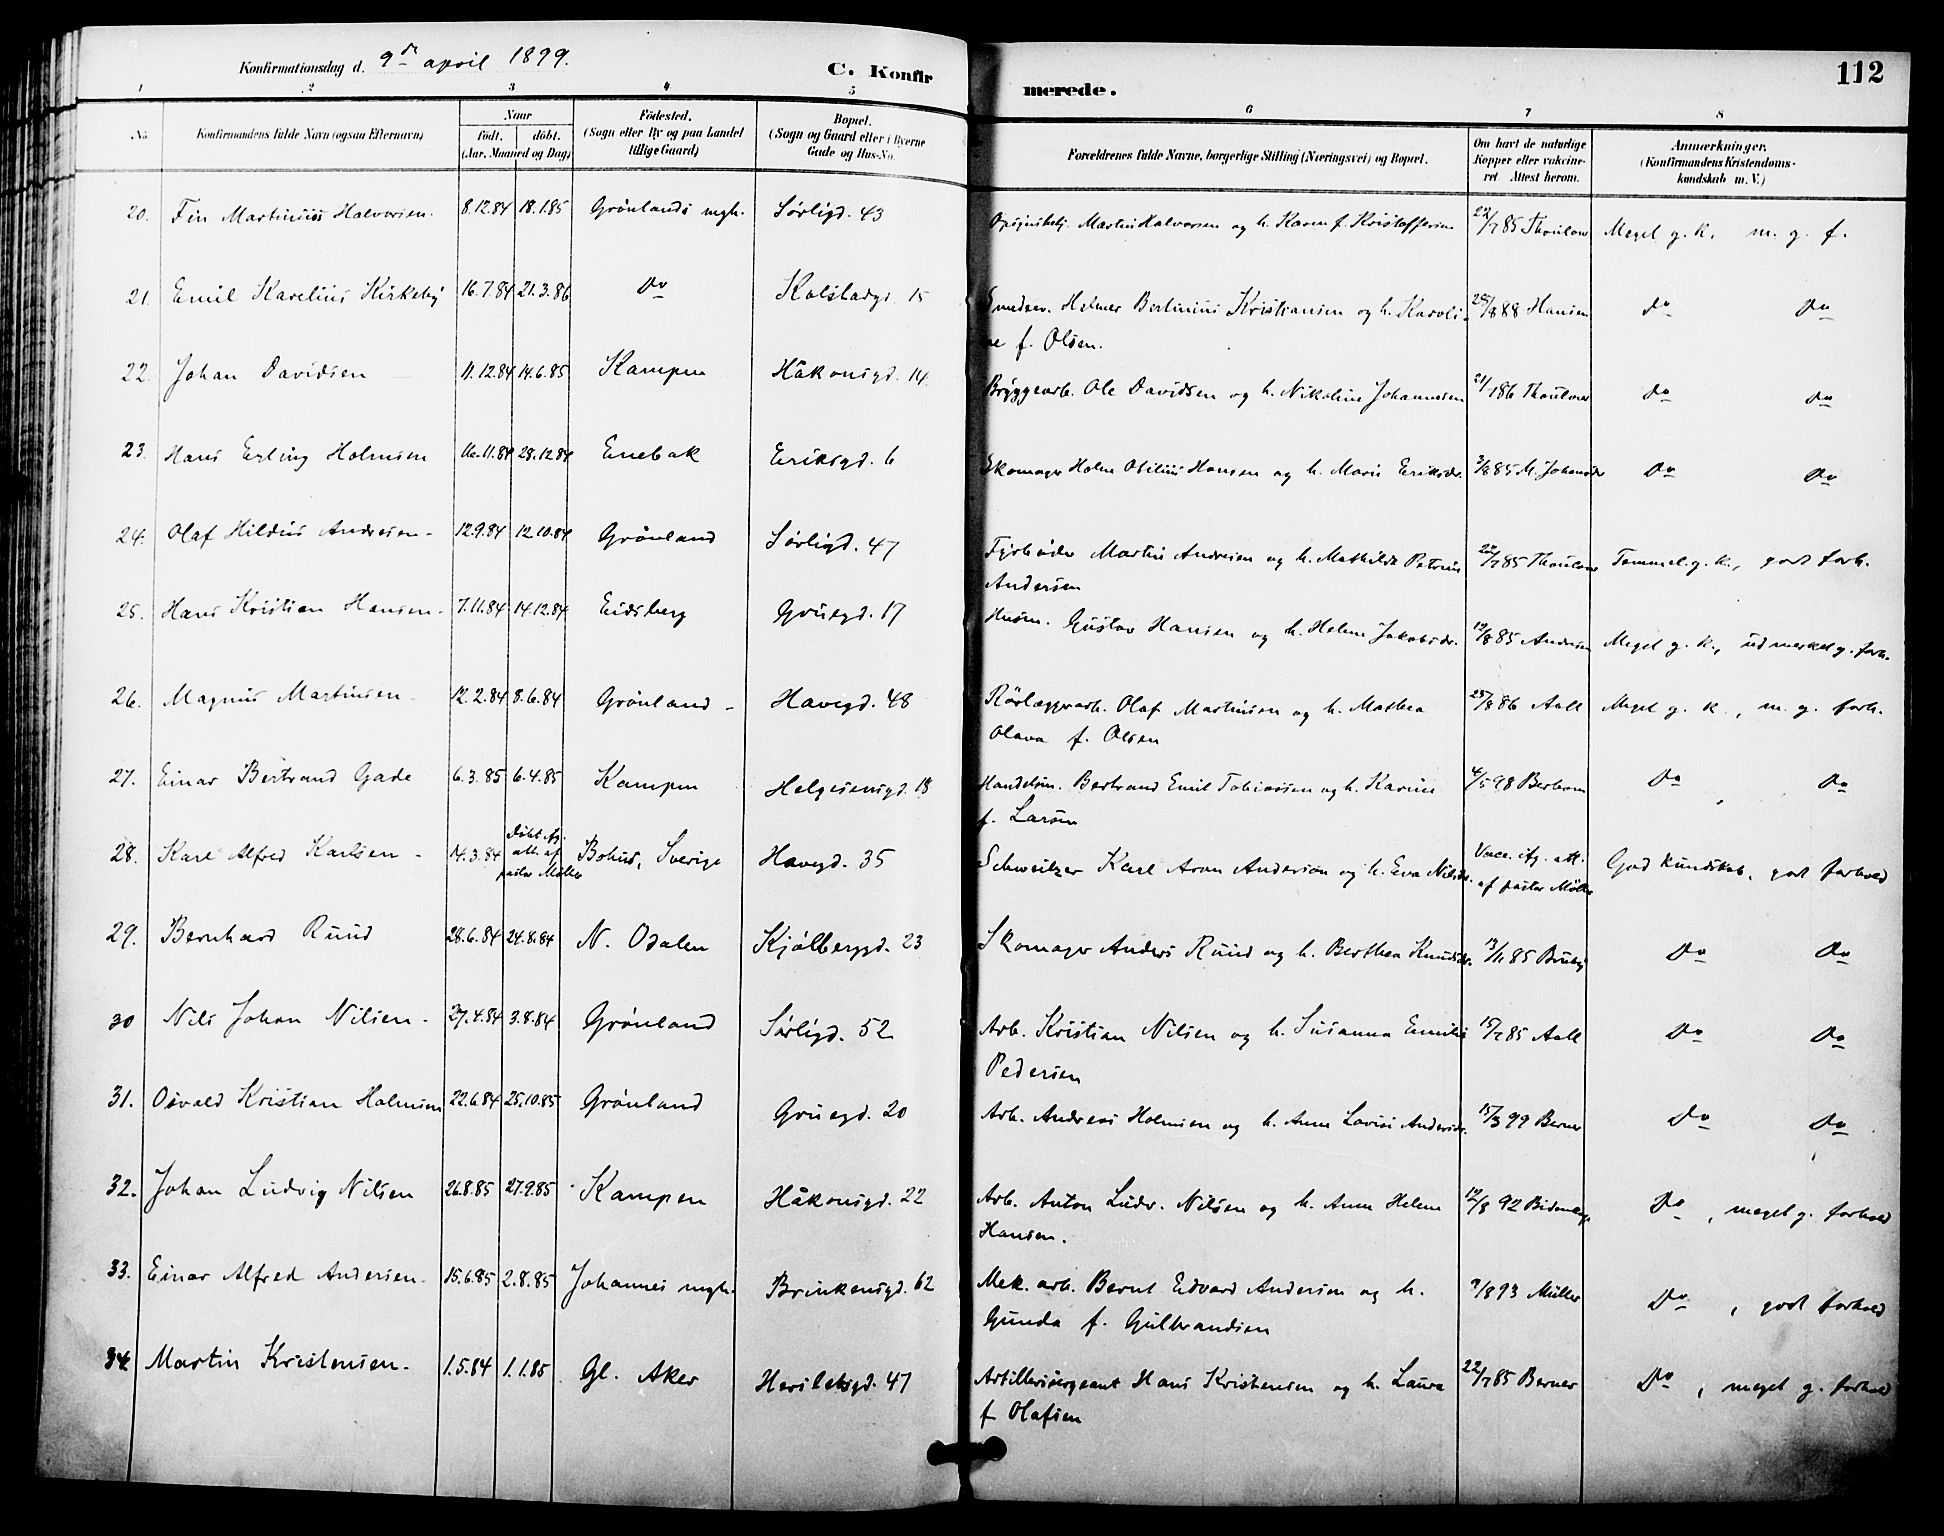 Konfirmationsdag d. 9de april 1899.
C. Konfirmerede.
112
1 2 3 4 5 6 7 8
No. Konfirmandens fulde Navn (ogsaa Efternavn) Naar født. døbt. (Aar, Maaned og Dag) Födested. (Sogn eller By og paa Landet tillige Gaard) Bopæl. (Sogn og Gaard eller i Byerne Gade og Hus-No. Forældrenes fulde Navne, borgerlige Stilling (Næringsvei) og Bopæl. Om havt de naturlige Kopper eller vakcineret. Attest herom. Anmærkninger. (Konfirmandens Kristendomskundskab m. V.)
20. Fin Martinius Halvorsen. 8.12.84 18.1.85 Grönlands mgh. Sörligd. 43 Martin Halvorsen og h. Karen f. Kristoffersen 22/7 85 Thoulow Meget g. k. m. g. f.
21. Emil Karelius Kirkeby 16.7.84 21.3.86 Do Kolstadgd. 15 Smedsv. Helmer Bertinius Kristiansen og h. Karoli-
ne f. Olsen. 25/8 88 Hansen Do Do
22. Johan Davidsen 11.12.84 14.6.85 Kampen Håkonsgd. 14. Bryggearb. Ole Davidsen og h. Nikoline Johannesen 21/7 86 Thoulow Do Do
23. Hans Erling Holmsen 16.11.84 28.12.84 Enebak Eriksgd. 6 Skomager Holm Otilius Hansen og h. Marie Eriksdr. 3/8 85 M. Do Do
24. Olaf Hildus Andresen- 12.9.84 12.10.84 Grönland Sörligd. 47 Fyrböder Martin Andresen og h. Mathilde Petrine
Andersen 22/7 85 Thoulow Temmel. g. k., godt forh.
25. Hans Kristian Hansen- 7.11.84 14.12.84 Eidsberg Gruegd. 17 Husm. Gustav Hansen og h. Helene Jakobsdr. 19/8 85 Andersen Meget g. k., udmerket g. forh.
26. Magnus Martinsen- 12.2.84 8.6.84 Grönland - Havegd. 48 Rörlæggerarb. Olaf Martinsen og h. Mathea
Olava f. Olsen 25/8 86 Aall Meget g. k., m. g. forh.
27. Einar Bertrand Gade 6.3.85 6.4.85 Kampen Helgesensgd. 18 Handelsm. Bertrand Emil Tobiassen og h. Karine
f. Larsen 4/5 98 Do Do
28. Karl Alfred Karlsen - 14.3.84 Döbt ifg. att. af pastor Möller Bohus, Sverige Havegd. 35 Schweitzer Karl Aron Anderson og h. Eva Nilsdr. Vacc. ifg. att. af pastor Möller God kundskab, godt forhold
29. Bernhard Ruud 28.6.84 24.8.84 N. Odalen Kjölberggd. 23 Skomager Anders Ruud og h. Berthea Knudsdr. 13/11 85 Do Do
30 Nils Johan Nilsen- 27.4.84 3.8.84 Grönland Sörligd. 52 Arb. Kristian Nilsen og h. Susanna Emilie
Pedersen 15/7 85 Aall Do Do
31. Osvald Kristian Holmsen 22.6.84 25.10.85 Grönland Gruegd. 20 Arb. Andreas Holmsen og h. Anne Lovise Andersdr. 15/3 99 Berner Do Do
32. Johan Ludvig Nilsen 26.8.85 27.9.85 Kampen Håkonsgd. 22 Arb. Anton Ludv. Nilsen og h. Anne Helene
Hansen. 12/8 92 Do, meget g. forhold
33. Einar Alfred Andersen- 15.6.85 2.8.85 Johannes mgh. Brinkensgd. 62 Mek. arb. Bernt Edvard Andersen og h.
Gunda f. Gulbrandsen 9/8 93 Müller Do, godt forhold
34. Martin Kristensen- 1.5.84 1.1.85 Gl. Aker Herslebsgd. 47 Artillerisergeant Hans Kristensen og h. Laura
f. Olafsen 22/7 85 Berner Do, meget g. forhold